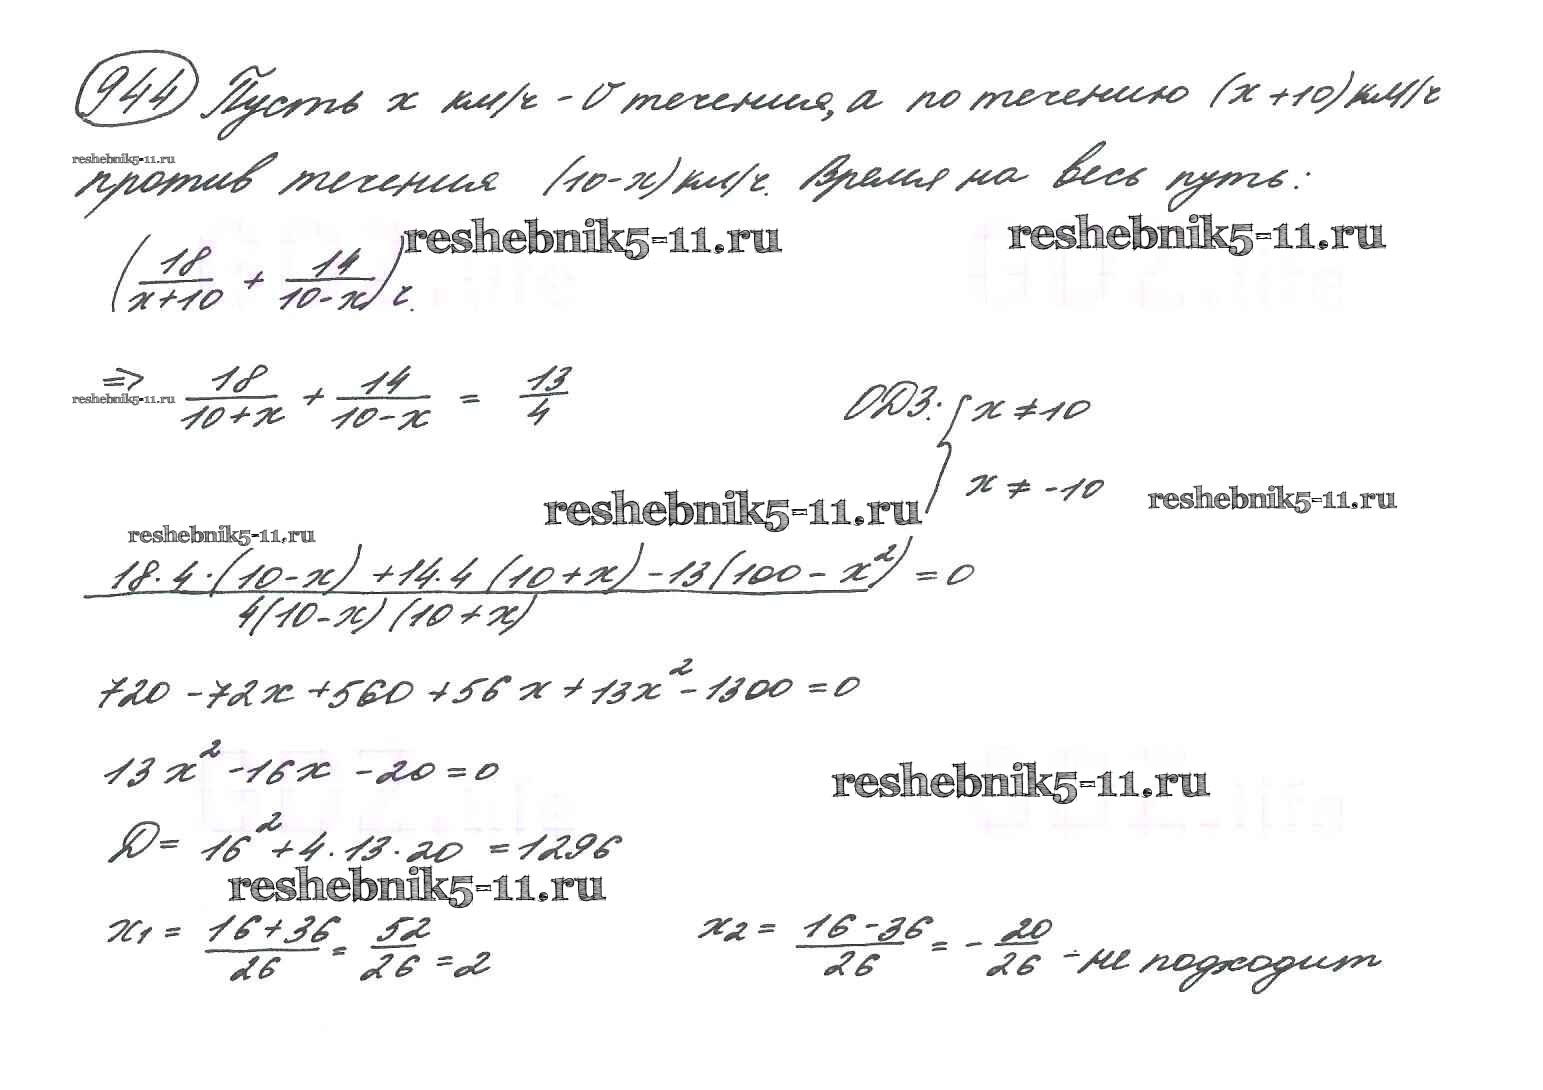 944 Пусть x км/ч - υ течения, а по течению (x+10) км/ч
reshebnik5-11.ru
против течения (10-x) км/ч. Время на весь путь:
reshebnik5-11.ru reshebnik5-11.ru
(18/(x+10) + 14/(10-x)) ч.
=> 18/(10+x) + 14/(10-x) = 13/4 ОДЗ: { x ≠ 10
reshebnik5-11.ru
x ≠ -10
reshebnik5-11.ru reshebnik5-11.ru
reshebnik5-11.ru
(18·4·(10-x) + 14·4(10+x) - 13(100-x²))/(4(10-x)(10+x)) = 0
720 - 72x + 560 + 56x + 13x² - 1300 = 0
13x² - 16x - 20 = 0
reshebnik5-11.ru
D = 16² + 4·13·20 = 1296
reshebnik5-11.ru
x₁ = (16+36)/26 = 52/26 = 2 x₂ = (16-36)/26 = -20/26 - не подходит